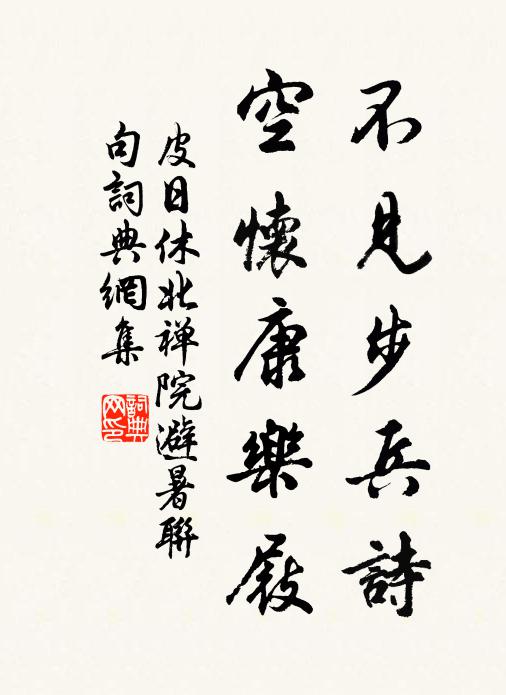 不見步兵詩
空懷康樂屐
皮日休北禅院避暑聯
句詞典網集
詞典
网印